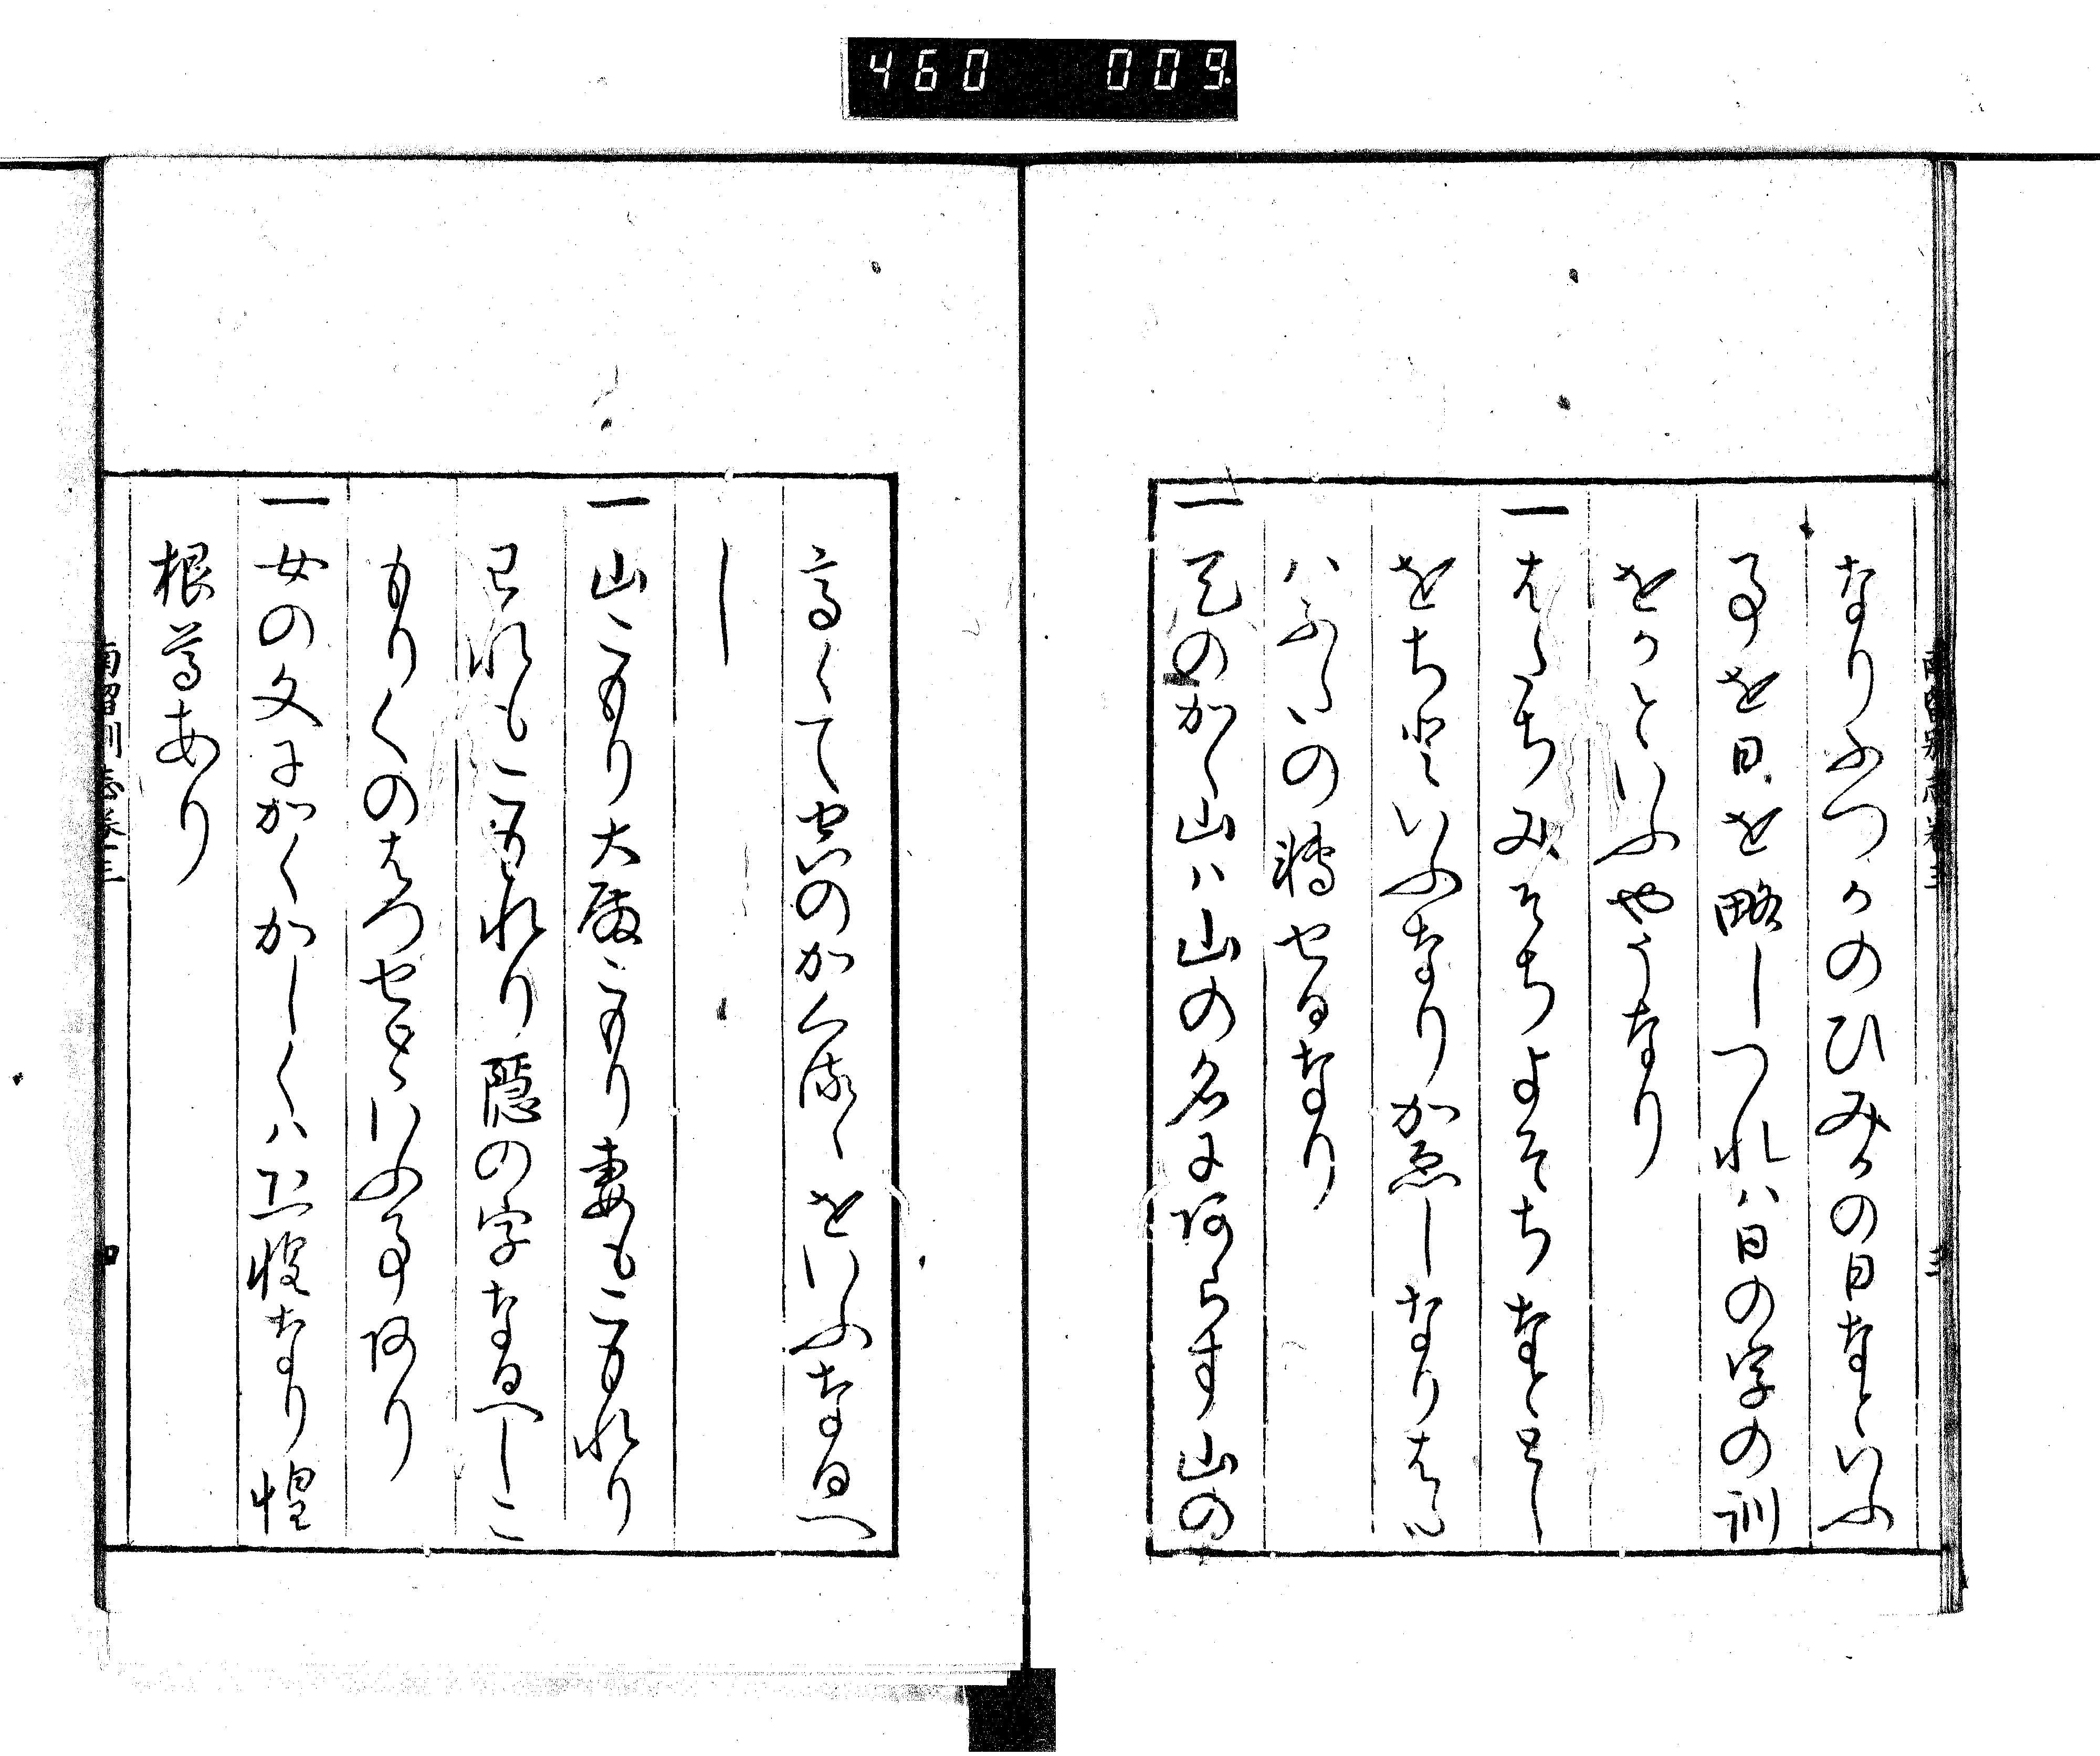 460 009
なりふつかのひみかの日なといふ
事を日を略しつれハ日の字の訓
をかといふやうなり
一はたちみそちよそちなとゝし
をちといふなりかゑしなりはた
ハふたの轉せるなり
一天のかく山ハ山の名にあらす山の
高くて空のかくるゝをいふなるへ
し
一山こもり大殿こもり妻もこもれり
われもこもれり隠の字なるへしこ
もりくのはつせといふ事あり
一女の文にかくかしくハ恐惶なり惶
根尊あり
南留別志卷三
三
四